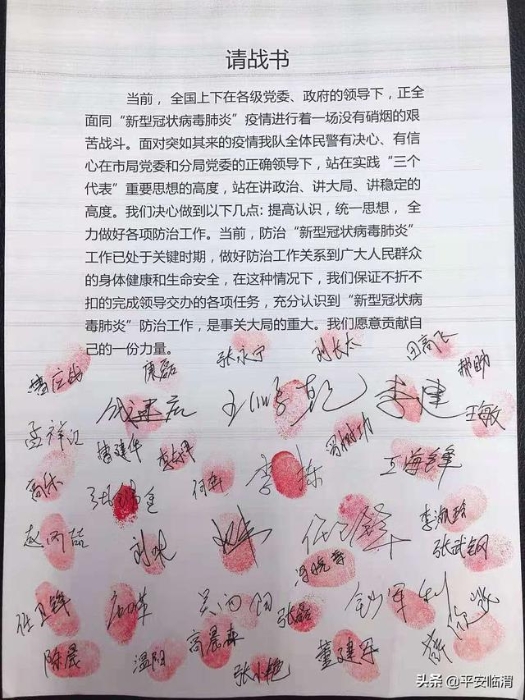 请战书
当前，全国上下在各级党委、政府的领导下，正全
面同“新型冠状病毒肺炎”疫情进行着一场没有硝烟的艰
苦战斗。面对突如其来的疫情我队全体民警有决心、有信
心在市局党委和分局党委的正确领导下，站在实践“三个
代表”重要思想的高度，站在讲政治、讲大局、讲稳定的
高度。我们决心做到以下几点: 提高认识，统一思想，全
力做好各项防治工作。当前，防治“新型冠状病毒肺炎”
工作已处于关键时期，做好防治工作关系到广大人民群众
的身体健康和生命安全，在这种情况下，我们保证不折不
扣的完成领导交办的各项任务，充分认识到“新型冠状病
毒肺炎”防治工作，是事关大局的重大。我们愿意贡献自
己的一份力量。
陈磊 张永宁 刘长太 田高飞
李建 王敏
孟祥江 曹建华
李栋 王海峰
张武钢
任卫锋 张磊
陈晨 温阳 高晨森 张小艳 董建军
头条 @平安临渭